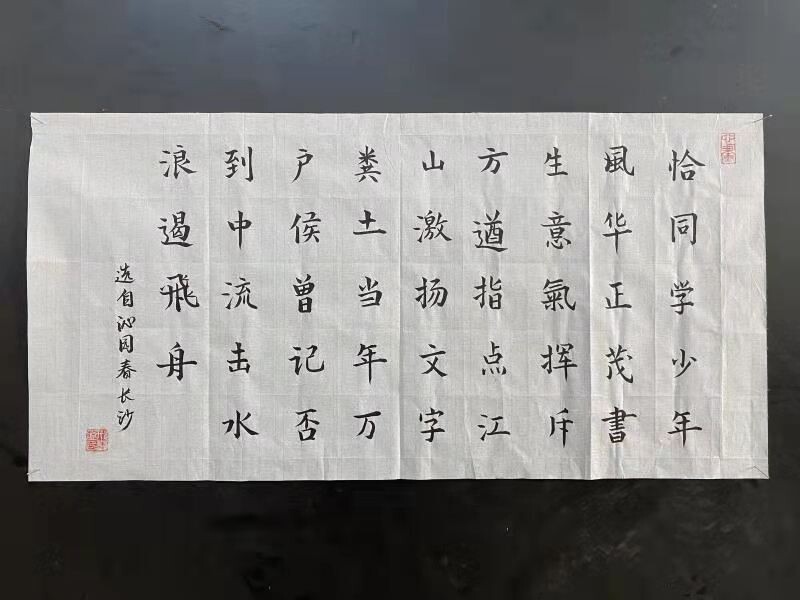 恰同学少年
風华正茂書
生意氣挥斥
方遒指点江
山激扬文字
粪土当年万
户侯曾记否
到中流击水
浪遏飛舟
选自沁园春长沙